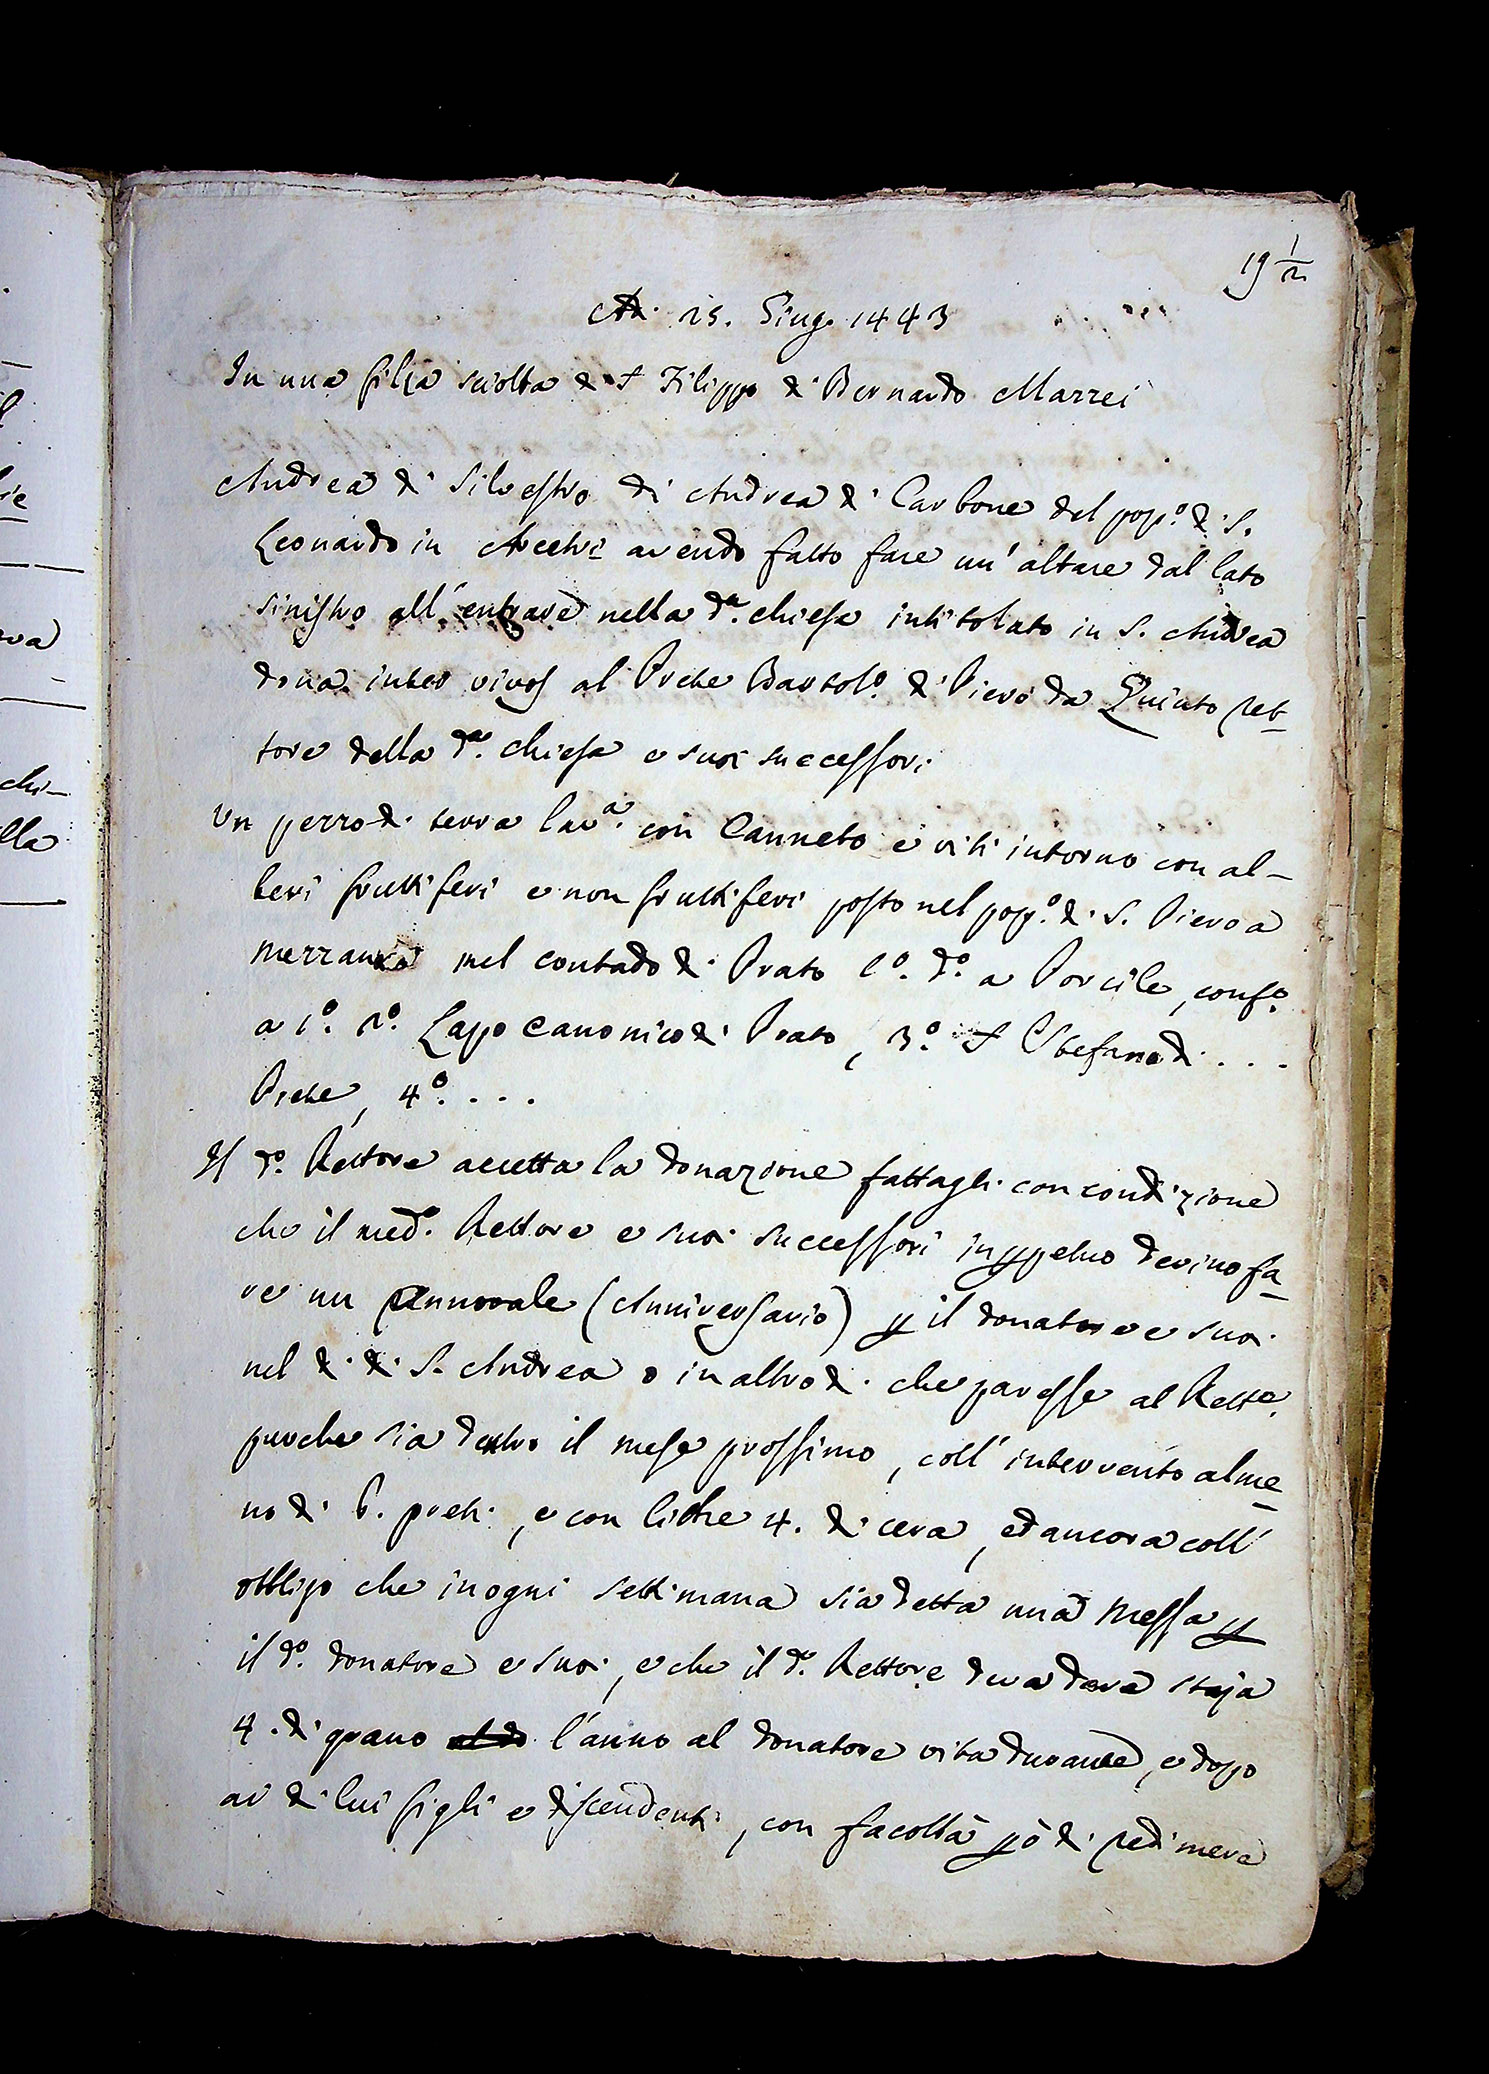 19 1/2
Adì 25. Giug. 1443
In una filza sciolta di S Filippo di Bernardo Mazzei
Andrea di Silvestro di Andrea di Carbone del pop.º di S.
Leonardo in Arcetri avendo fatto fare un' altare dal lato
sinistro all' entrare nella d.ª chiesa intitolato in S. Andrea
dona inter vivos al Prete Bartol.º di Piero da Quinto ret-
tore della d.ª chiesa e suoi successori
Un pezzo di terra lav.ª con Canneto e viti intorno con al-
beri fruttiferi e non fruttiferi posto nel pop.º di S. Piero a
Mezzana nel contado di Prato l.º d.º a Porcile, conf.º
a 1.º 2.º Lapo Canonico di Prato, 3.º S Stefano di . . .
Prete, 4.º . . .
Il d.º Rettore accetta la donazione fattagli con condizione
che il med.º Rettore e suoi successori in ppetuo devino fa-
re un Annovale (Anniversario) p il donatore e suoi
nel dì di S. Andrea o in altro dì che paresse al Rett.e
purche sia dentro il mese prossimo, coll' intervento alme-
no di 6. preti, e con libre 4. di cera, ed ancora coll'
obbligo che in ogni settimana sia detta una Messa p
il d.º donatore e suoi, e che il d.º Rettore deva dare staja
4. di grano l'anno al donatore vita durante, e dopo
ai di lui figli e discendenti, con facoltà pò di redimere